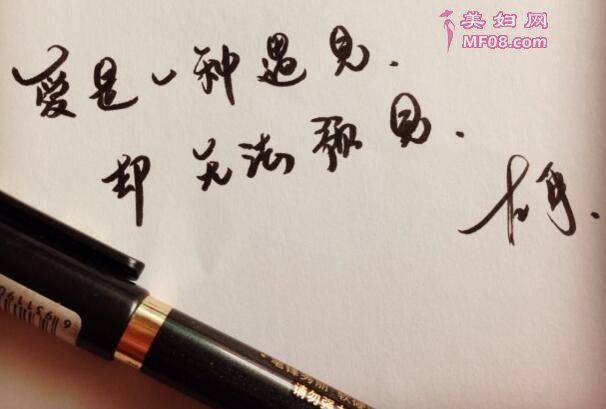 美妇网
MF08.com
愛是一种遇见.
却无法预见.
请勿强